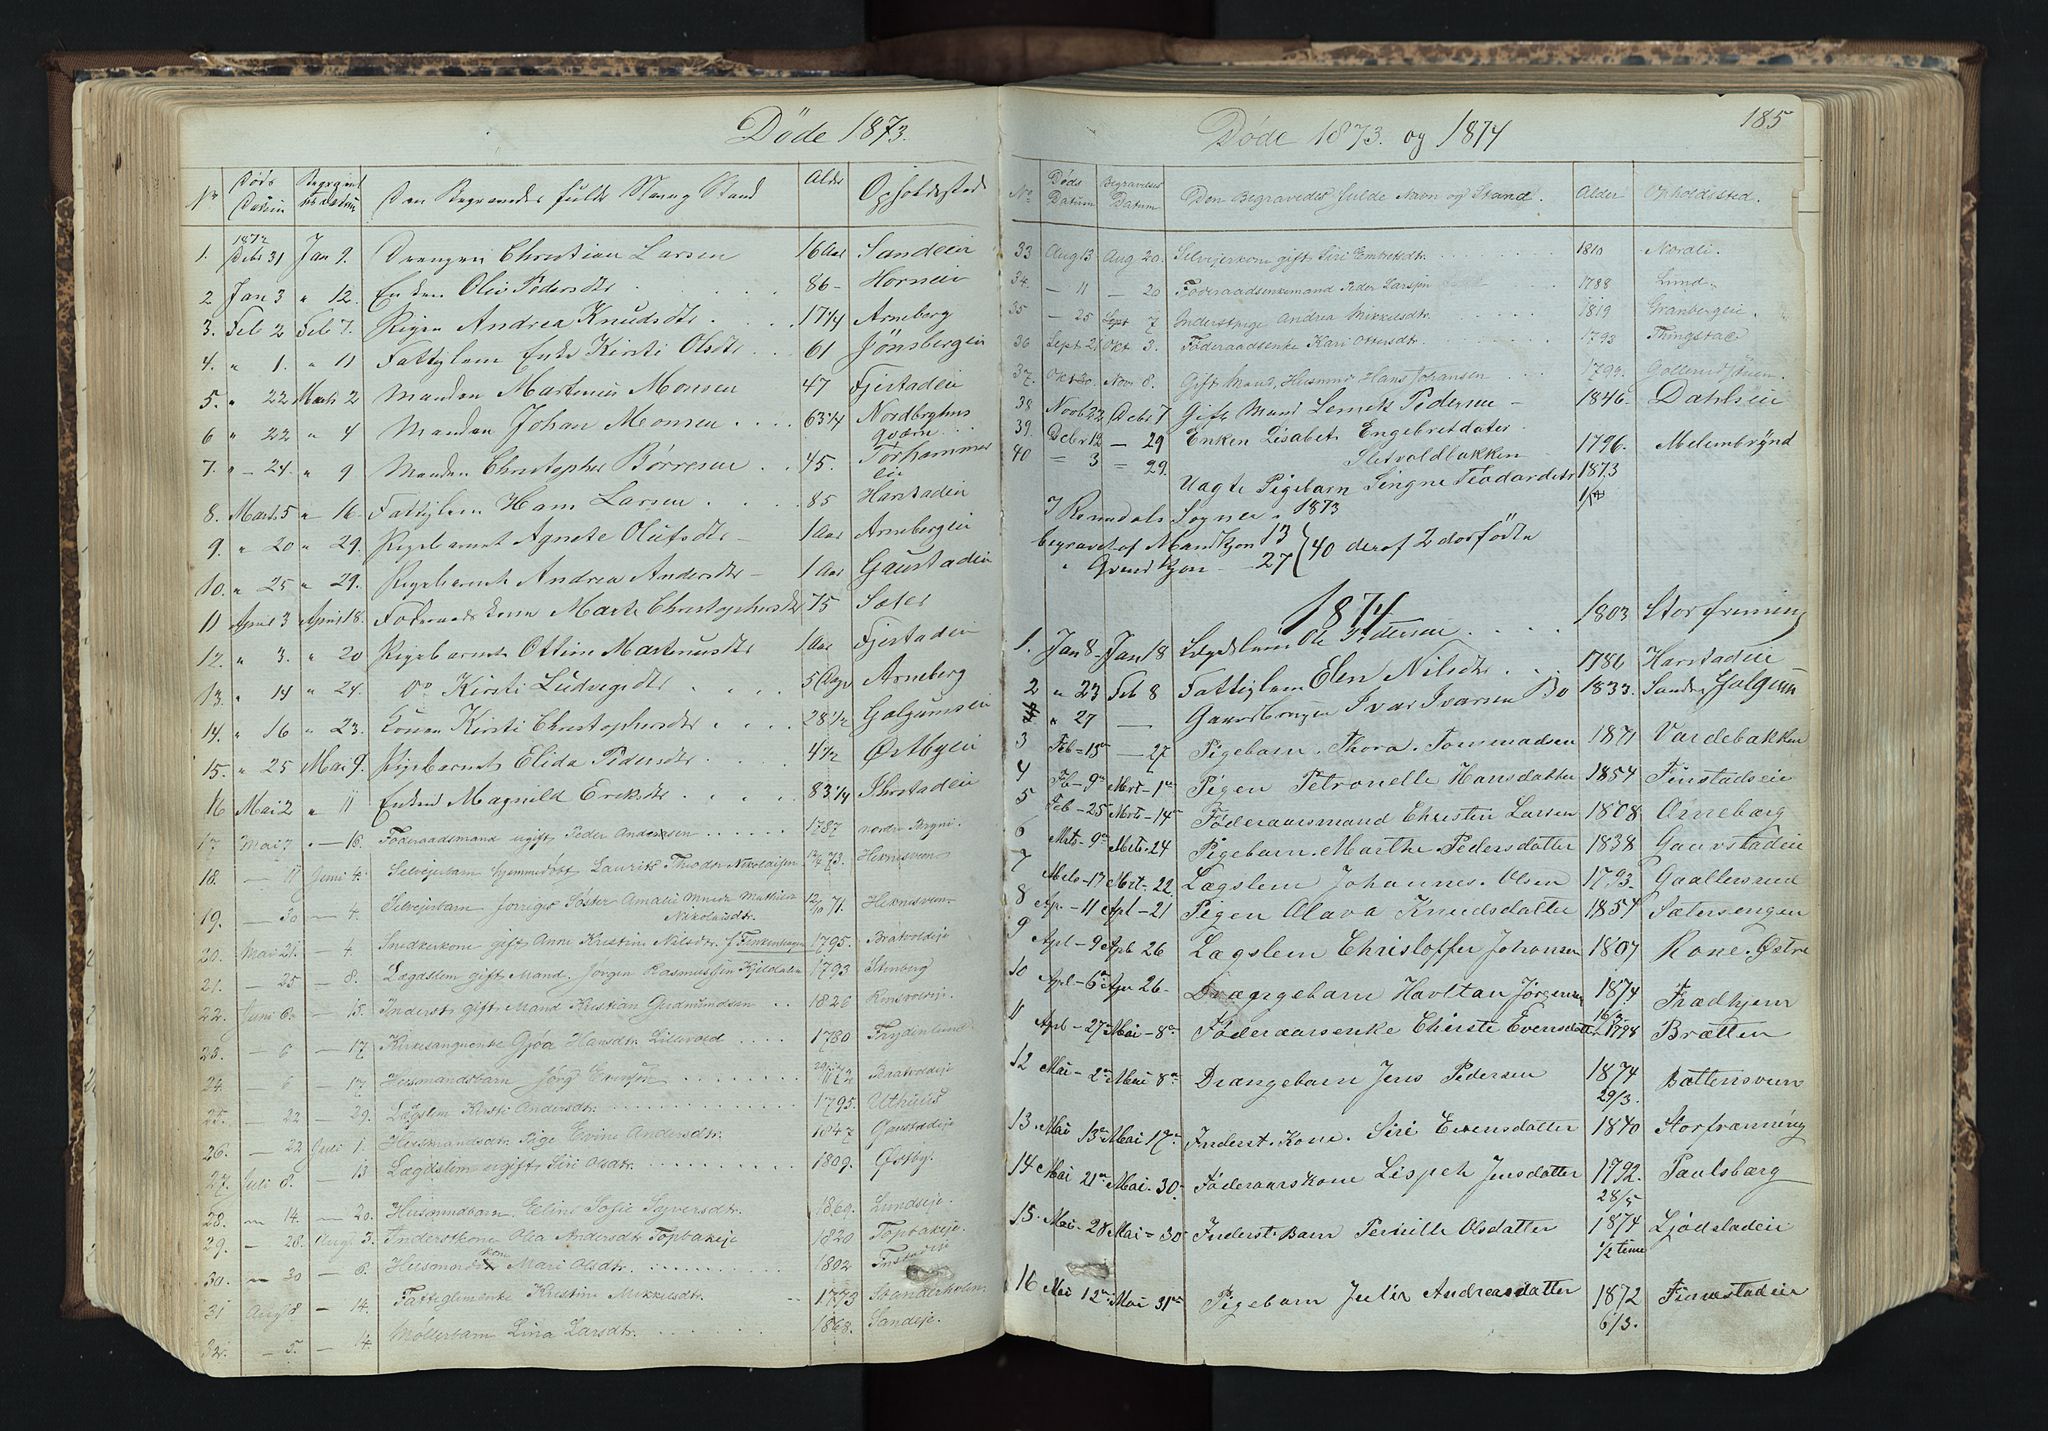 Döde 1873.
No Döds Datum Alder Opholdssted
1. 1872 Debr 31 Jan 9. Drengen Christian Larsen 16 Aar Sandeie
2 Jan 3 " 12. Enken Oliv Pedersdtr 86 - Horneie
3. Feb 2 Feb 7. Pigen Andrea Knudsdtr. 17 1/4 Arneberg
4. " 1. " 11 Fattiglem Enke Kirsti Olsdtr 61 Jönsbergeie
5. " 22 Marts 2 Manden Martinius Monsen 47 Fjestadeie
6 " 22 " 4 Manden Johan Monsen 63 1/4 Nordbyhus qværn
7. " - 24. " 9 Manden Christopher Börresen 45. Torhammer eie
8. Marts 5 " - 16. Fattiglem Hans Larsen 85 Harstadeie
9. " 20 " 29. Pigebarnet Agnete Olufsdtr - 1 Aar Arnebergeie
10. " 25 " 29. Pigebarnet Andrea Andersdtr - 1 Aar Gaustadeie
11 April 3 April 18. Föderaadskone Marte Christophersdtr 75 Sæter
12. " 3. " 20 Pigebarnet Ottine Martinusdtr 1 Aar Fjestadeie
13. " 14 " 24. Do Kirsti Ludvigsdtr 5 Dage Arneberg
14. " 16 " 23. Konen Kirsti Christophersdtr 28 1/2 Galgumseie
15. " 25 Mai 9. Pigebarnet Elida Pedersdtr 4 1/2 Østbyeie
16 Mai 2 " 11 Enken Magnild Eriksdtr 83 1/4
17 Mai 7 " - 16. Föderaadsmand ugift Peder Andersen 1787 nordre Bergni.
18. - 17 Juni 4. Selvejerbarn hjemmedöbt Laurits Thodor Nikolaisen 73. Heknisveen
19. - 30 - 4. Selvejerbarn forriges Söster Amalie Mathea Nikolaisdtr. 12/10 71. Heknisveen
20. Mai 21. - 4. Snedkerkone gift Anne Kristine Nilsdtr. f. Finkenhagen 1795. Bratvoldeje
21. - 25 - 8. Lægdslem gift Mand. Jörgen Rasmussen Kjeldalen 1793 Stenberg
22. Juni 6. - 15. Inderst gift Mand Kristian Gudmundsen 1826
23. - 6 - 17. Kirkesangerenke Gjöa Hansdtr. Lillevold 1780 Frydenlund
24. - 6 - 17. Husmandsbarn Jörg Bratvoldeje
25. - 22 - 29. Lægslem Kirsti Andersdtr. 1795. Uthuus
26. - 22 Juli 1. Husmandsdtr. Pige Evine Andersdtr. 1847 Gaustadeje
27. Juli 8. - 13 Lægdslem ugift Siri Olsdtr. 1809. Østby.
28. - 14. - 20. Husmandbarn Eline Sofie Syversdtr. 1869. Lundseje.
29. - 28. Augt 3. Inderstkone Olea Andersdtr Topbakeje 1820 Topbakeje.
30. - 30 - 6. Husmandskone Mari Olsdtr. 1802
31 Augt 8 - 14. Fattiglemenke Kristine Mikkelsdtr. 1773 Sönderholm.
32. - 5. - 14. Möllerbarn Lina Larsdtr. 1868. Sandeje.
Döde 1873. og 1874
185
No Döds Datum Begravelses Datum Den Begravedes fulde Navn og Stand. Alder Opholdssted.
33 Aug 13 Aug 20. Selvejerkone gift Siri Embretsdtr. 1810 Nordli.
34. - 11 - 20 Föderaadsenkemand Peder Larsen 1788 Lund.
35 - 25 Sept 7 Inderstpige Andrea Mikkelsdtr. 1819 Granbergeie.
36 Sept 21 Okt 3. Föderaadsenke Kari Ottersdtr. 1793 Thingstad
37. Okt 30. Novr 8. Gift Mand, Husmd Hans Johansen
38 Novb 22 Debr 7 Gift Mand Lemek Pedersen - 1846. Dahlseie
39. Debr 12 - 29 Enken Lisabet Engebretdater Sletvoldbakken 1796. Melembrýnd
40 = 3 = 29. Uægte Pigebarn Singne Teodardtr 1873
I Romedals Sogn er i 1873
begravet af Mandkjøn 13 } 40 deraf 2 dødfödte
" Qvindkjøn - 27
1874
1. Jan 8 - Jan 18 Lægdslem Ole Pedersen 1803 Storfrening
2 " 23 Feb 8 Fattiglem Elen Nilsdtr 1786 Harstadeie
" 27 — Gaardbruger Ivar Ivarsen Bo 1833. Søndre Galgum
3 Feb - 15de — 27 Pigebarn. Thora. Tommadsen 1871 Vardebakken
4 Feb - 9de Mrt - 1ste Pigen Petronelle Hansdatter 1854 Finstadseie
5 Feb - 25 Mrts - 14 Föderaarsmand Christen Larsen 1808 Arneberg
6 Mrts - 9de Mrts - 24 Pigebarn. Marthe Pedersdatter 1838 Gaustadeie
7 Mrts - 17 Mrt - 22. Lægslem Johannes. Olsen 1793. Gaallersrud
8 Apr. - 11 Apl - 21 Pigen Olava Knudsdatter 1854 Sætersengen
9 Apl - 9 Apb 26 Lægslem Christoffer Johansen 1807 Rone. Østre
10 Apl - 6te Apr 26 - Drængebarn Havltan Jørgensen 1874 16/3. Fredhjem
11 Apl - 27 Mai - 8de Föderaarsenke Chirste Evensdatter 1798 Brætten
12 Mai - 2den Mai 8de Drangebarn Jens Pedersen 1874 29/3. Battensveen
13. Mai 13de Mai 17de Inderst. Kone. Siri Evensdatter 1840 Storfranning
14 Mai 21de Mai. 30. Föderaarskone Lispeth Jensdatter 1792. Paulsbærg
15. Mai. 28 Mai - 30 Inderst. Barn Pernille Olsdatter 28/5 1874 1/2 time Ljødstadeie
16 Mai 12te Mai 31te Pigebarn Julie Andreasdatter 1872 6/3. Finnestadeie